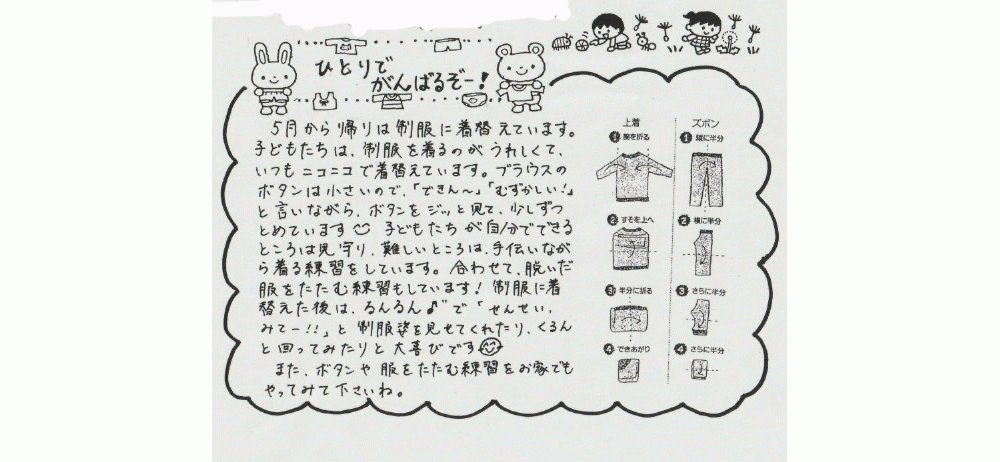 ひとりで
がんばるぞー!
5月から帰りは制服に着替えています。
子どもたちは、制服を着るのがうれしくて、
いつもニコニコで着替えています。ブラウスの
ボタンは小さいので、「できん〜」「むずかしい!」
と言いながら、ボタンをジッと見て、少しずつ
とめています 子どもたちが自分でできる
ところは見守り、難しいところは、手伝いなが
ら着る練習をしています。合わせて、脱いだ
服をたたむ練習もしています!制服に着
替えた後は、るんるん♪で「せんせい、
みてー!!」と制服姿を見せてくれたり、くるん
と回ってみたりと大喜びです
また、ボタンや服をたたむ練習をお家でも
やってみて下さいね。
上着
1 腕を折る
2 すそを上へ
3 半分に折る
4 できあがり
ズボン
1 縦に半分
2 横に半分
3 さらに半分
4 さらに半分